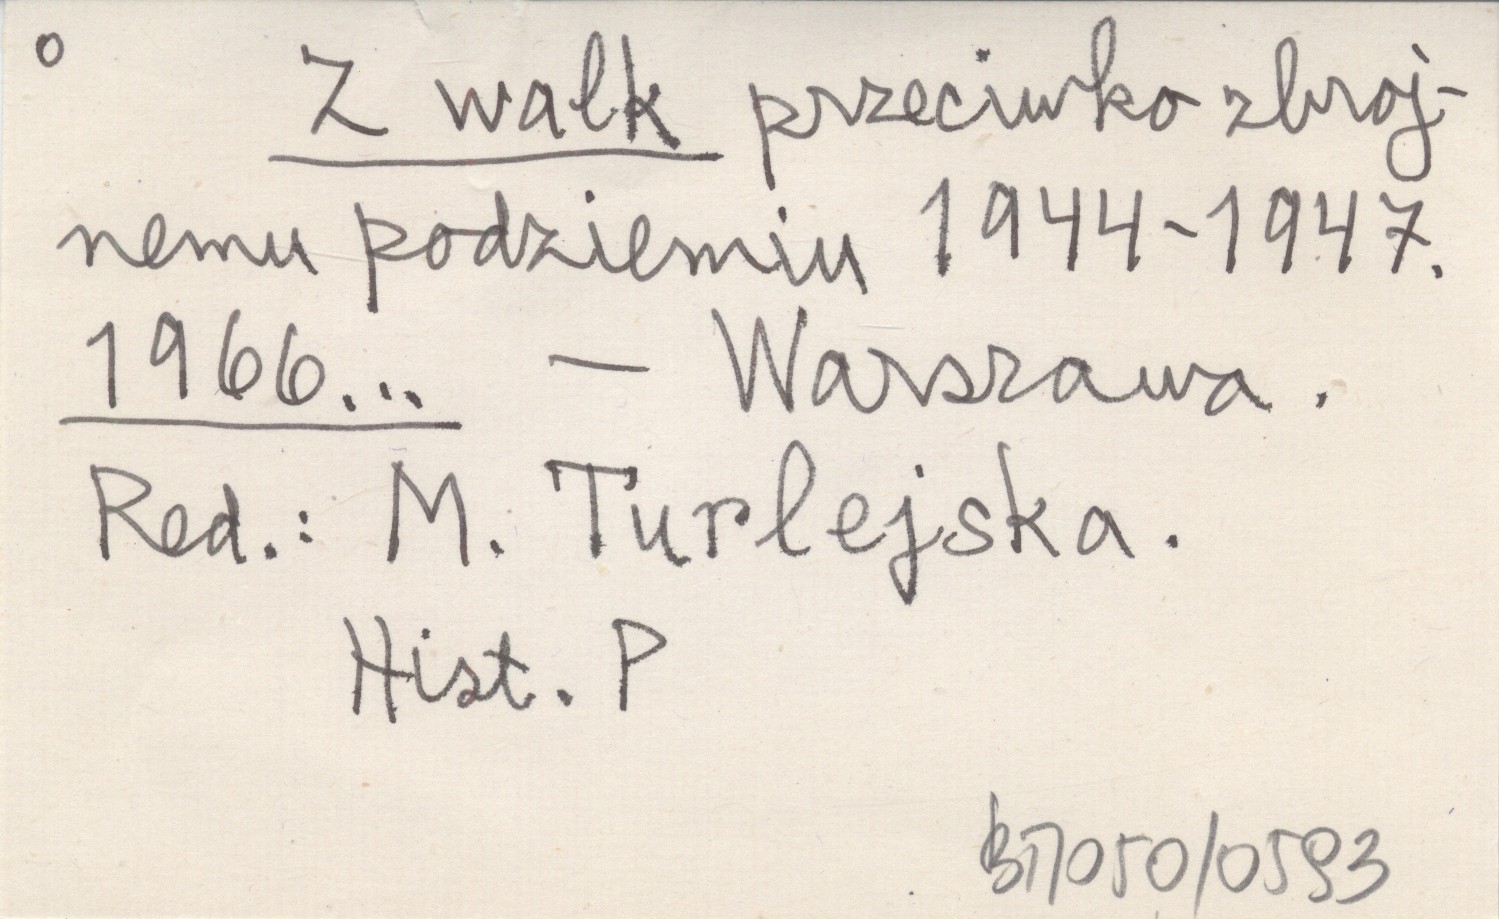 o Z walk przeciwko zbroj-
nemu podziemiu 1944-1947.
1966... — Warszawa.
Red.: M. Turlejska.
Hist. P
BП050/0593